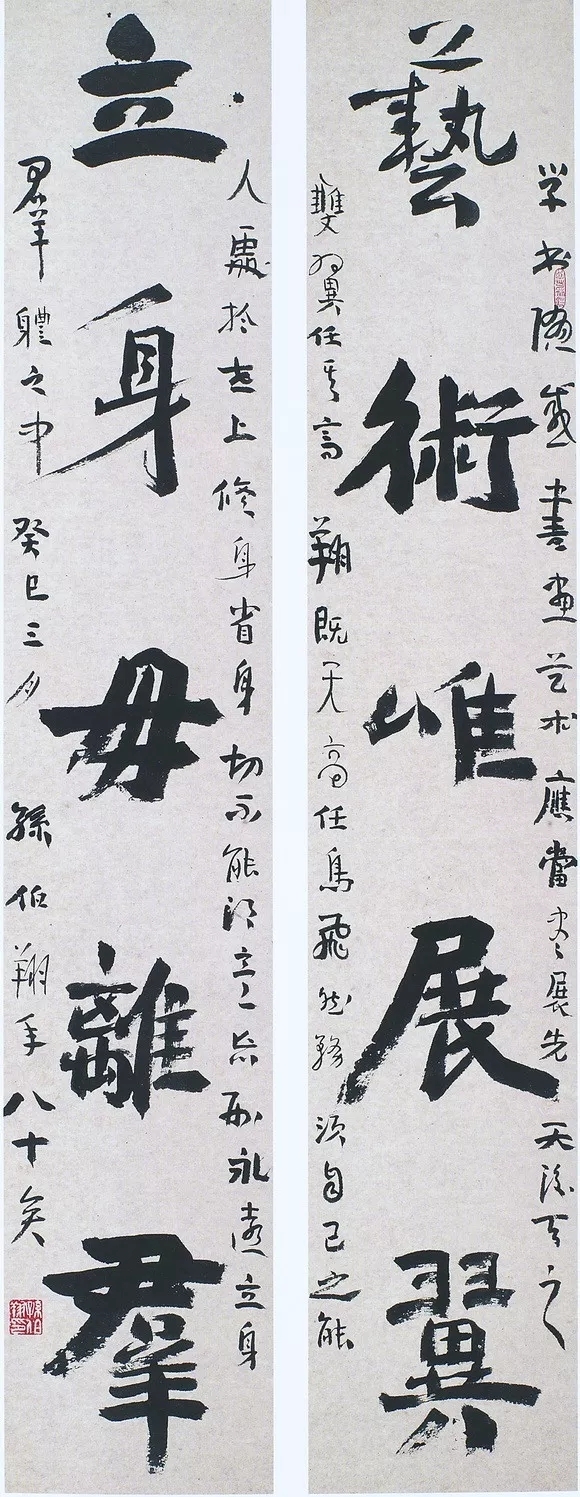 藝術唯展翼
学书随感書画艺术應當尽展先天後天之
雙翼任其高翔既天高任鳥飛然務須自己之能
立身毋離羣
人處於世上修身省身切不能得意忘形永遠立身
羣體之中癸巳三月孫伯翔年八十矣